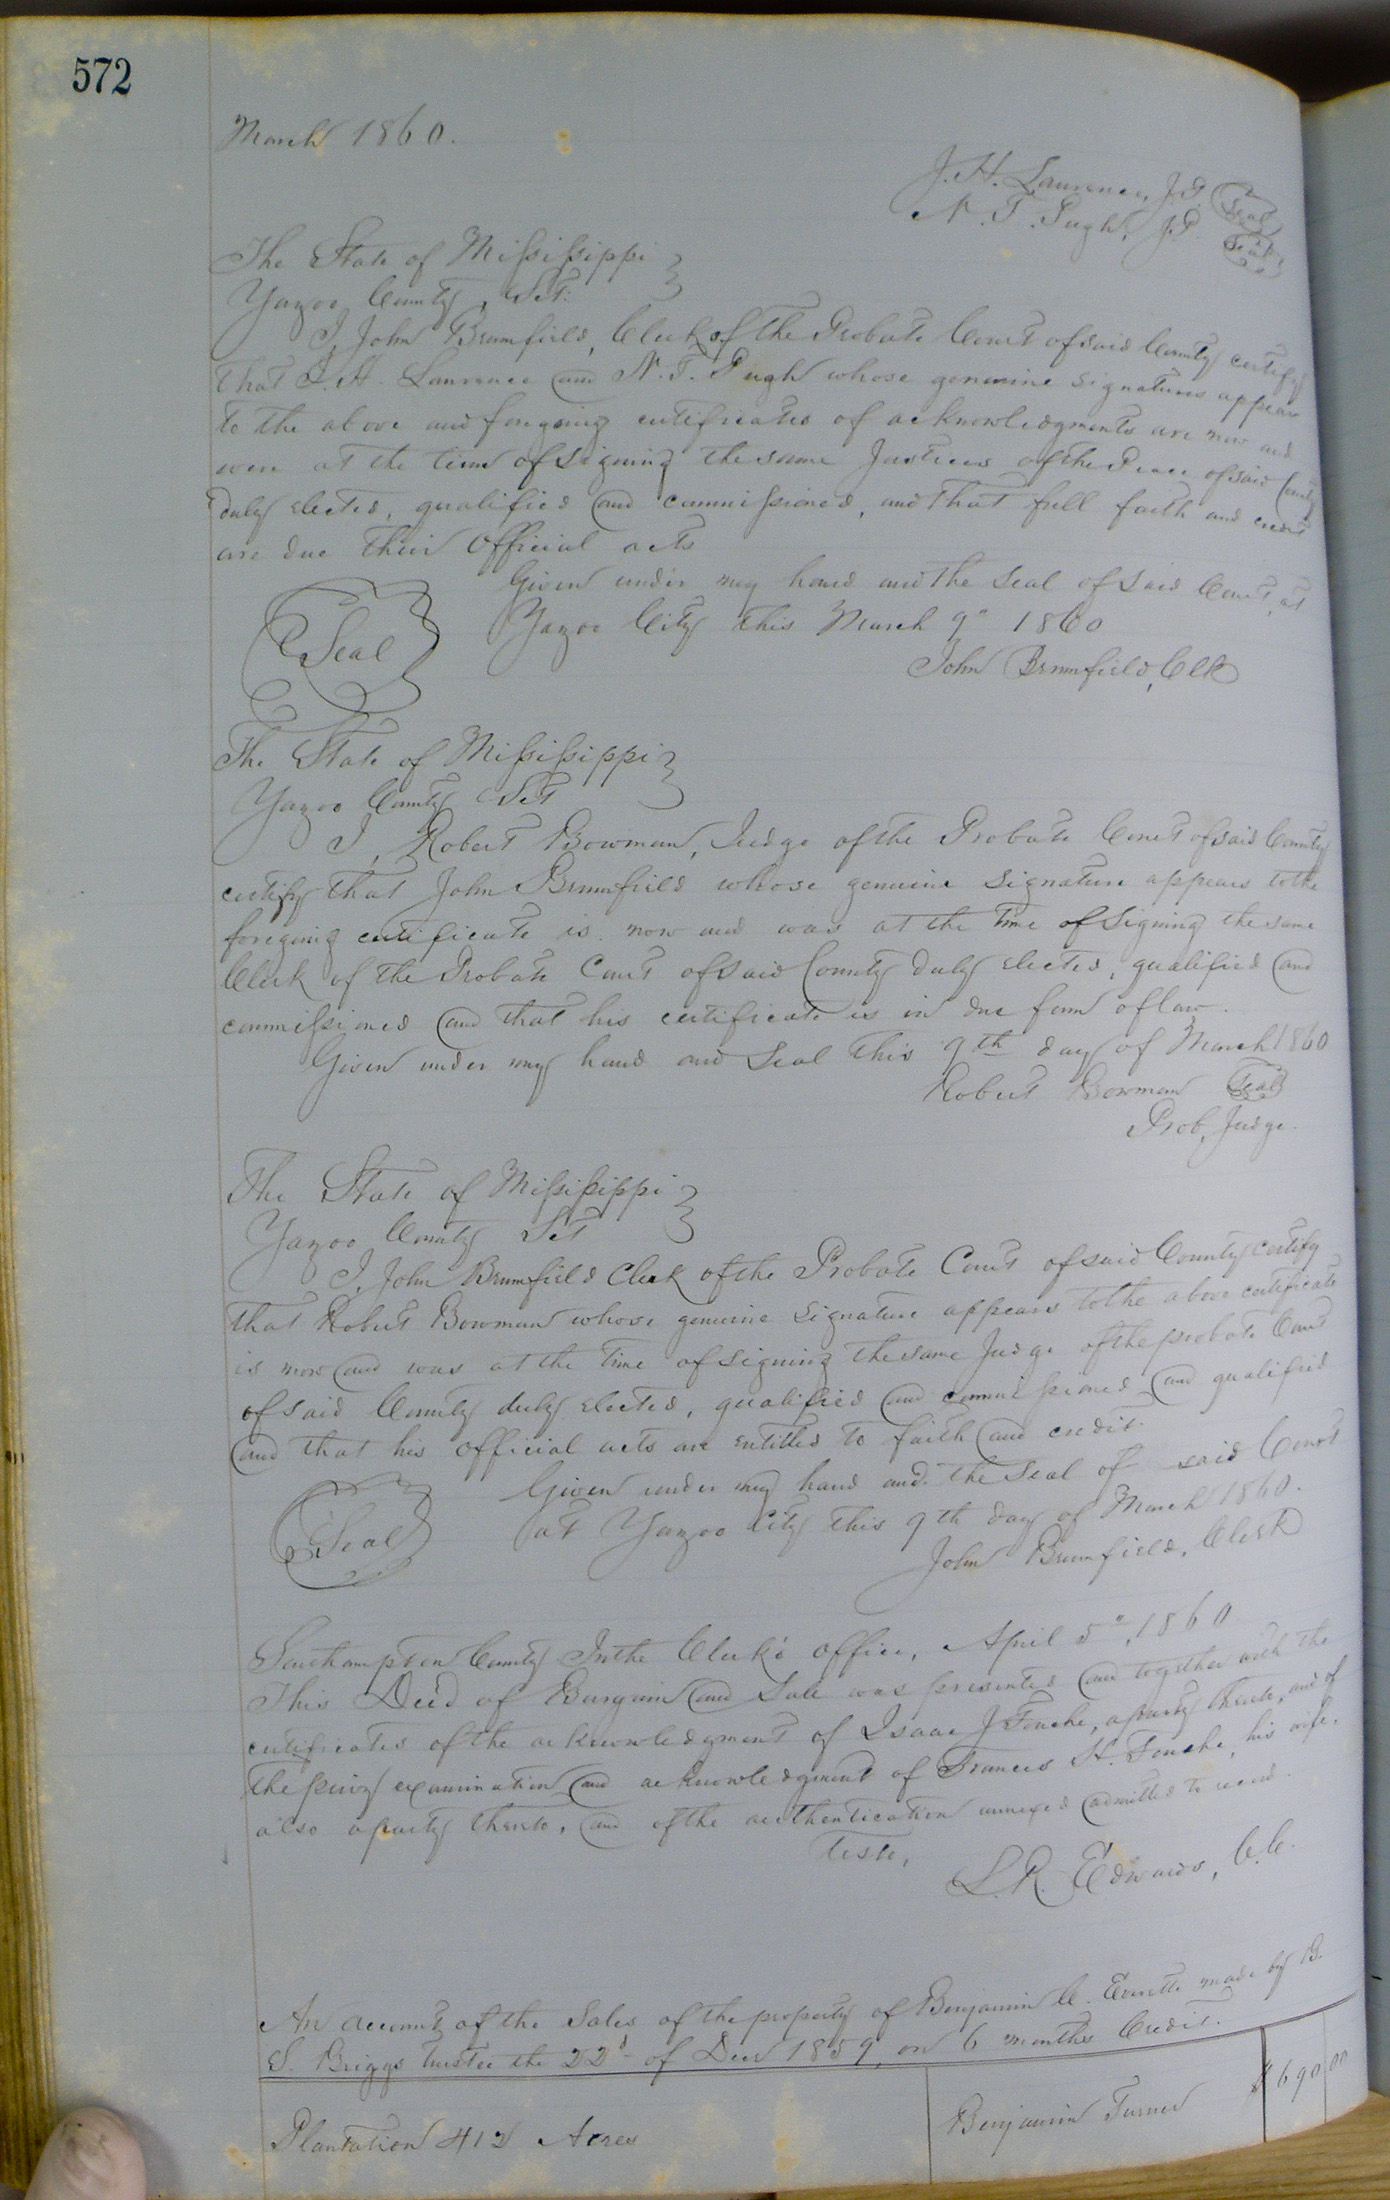 572
March 1860.
J. H. Lawrence, J.P. Seal
N. T. Pugh, J.P. Seal
The State of Mississippi
Yazoo County, Set:
I, John Brumfield, Clerk of the Probate Court of said County certify
that J. H. Lawrence and N. T. Pugh whose genuine signatures appear
to the above and foregoing certificates of acknowledgments are now and
were at the time of signing the same Justices of the Peace of said County
duly elected, qualified and commissioned, and that full faith and credit
are due their official acts
Given under my hand and the Seal of said Court, at
Seal Yazoo City this March 9" 1860
John Brumfield, Clk
The State of Mississippi
Yazoo County Set
I, Robert Bowman, Judge of the Probate Court of said County
certify that John Brumfield whose genuine signature appears to the
foregoing certificate is now and was at the time of signing the same
Clerk of the Probate Court of said County duly elected, qualified and
commissioned and that his certificate is in due form of law.
Given under my hand and Seal this 9th day of March 1860
Robert Bowman Seal
Prob. Judge.
The State of Mississippi
Yazoo County Set
I, John Brumfield Clerk of the Probate Court of said County certify
that Robert Bowman whose genuine signature appears to the above certificate
is now and was at the time of signing the same Judge of the probate Court
of said County duly elected, qualified and commissioned and qualified
and that his official acts are entitled to faith and credit.
Given under my hand and the Seal of said Court
Seal at Yazoo City this 9th day of March 1860.
John Brumfield, Clerk
Southampton County In the Clerk's office, April 5", 1860
This Deed of Bargain and Sale was presented and together with the
certificates of the acknowledgment of Isaac J Fouche, a party thereto, and of
the privy examination and acknowledgment of Frances H. Fouche, his wife,
also a party thereto, and of the authentication annexed admitted to record.
Teste,
L. R. Edwards, C.C.
An account of the Sales of the property of Benjamin C. Everette made by B.
S. Briggs trustee the 22d of Decr 1859, on 6 months Credit.
Plantation 412 Acres Benjamin Turner $690 00